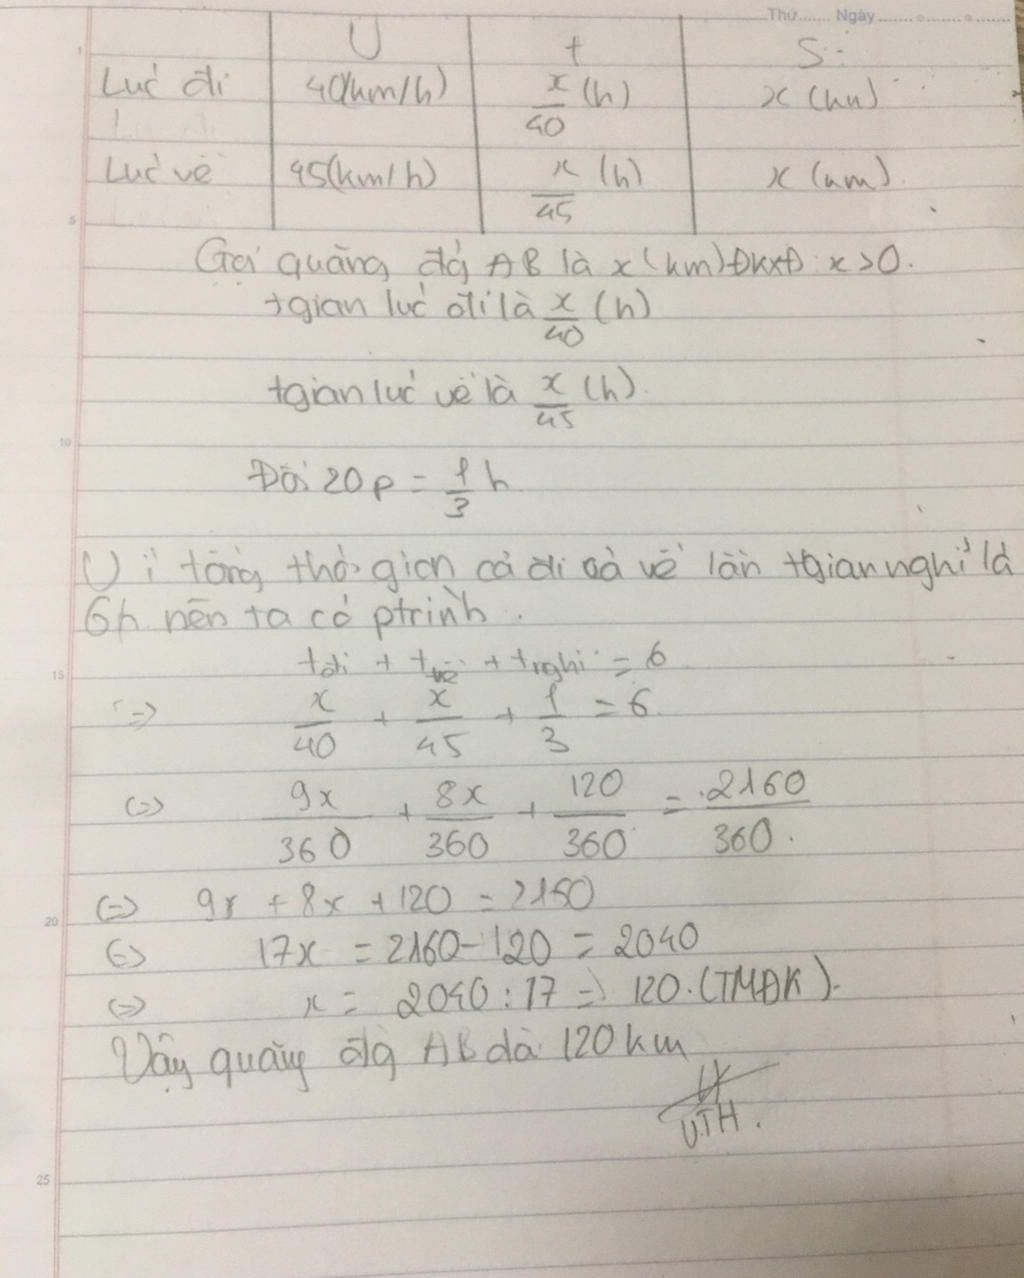 Thứ...... Ngày........................
U t S
Lúc đi 40(km/h) x/40 (h) x (km)
Lúc về 45(km/h) x/45 (h) x (km)
Gọi quãng đg AB là x (km) ĐKXĐ: x>0.
tgian lúc đi là x/40 (h)
tgian lúc về là x/45 (h).
Đổi 20p = 1/3 h
Vì tổng thời gian cả đi và về lẫn tgian nghỉ là
6h nên ta có ptrình.
tđi + tvề + tnghỉ = 6
=> x/40 + x/45 + 1/3 = 6
<=> 9x/360 + 8x/360 + 120/360 = 2160/360.
<=> 9x + 8x + 120 = 2160
<=> 17x = 2160 - 120 = 2040
<=> x = 2040 : 17 => 120. (TMĐK).
Vậy quãng đg AB dài 120km
U.TH.
5
10
15
20
25